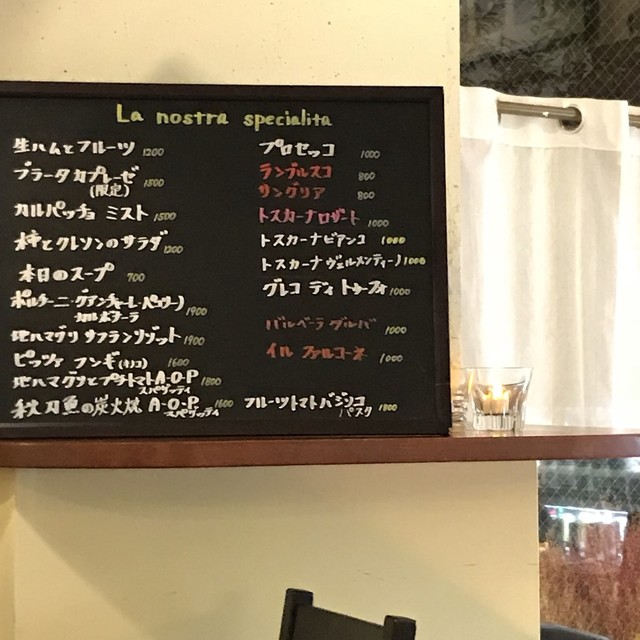 La nostra specialita
生ハムとフルーツ 1200
ブラータカプレーゼ 1500
(限定)
カルパッチョ ミスト 1500
柿とクレソンのサラダ 1200
本日のスープ 700
ポルチーニ・グアンチャーレ・ペッサーノ
カルボナーラ 1900
地ハマグリ サフランリゾット 1900
ピッツァ フンギ(キノコ) 1600
地ハマグリとプチトマト A・O・P 1800
スパゲッティ
秋刀魚の炭火焼 A・O・P 1600
スパゲッティ
プロセッコ 1000
ランブルスコ 800
サングリア 800
トスカーナロザート 1000
トスカーナビアンコ 1000
トスカーナヴェルメンティーノ 1000
グレコ ディ トゥーフォ 1000
バルベーラ ダルバ 1000
イル ファルコーネ 1000
フルーツトマトバジリコ 1800
パスタ